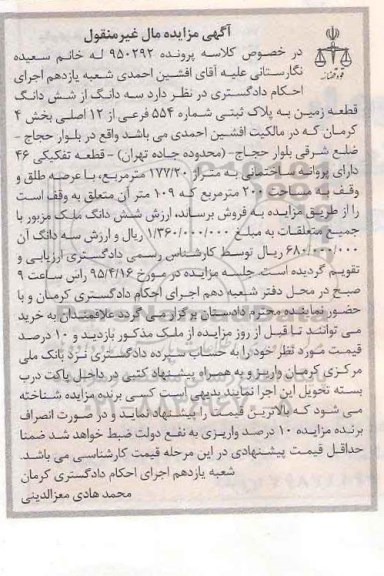 آگهی مزایده مال غیرمنقول
در خصوص کلاسه پرونده ۹۵۰۲۹۲ له خانم سعیده
نگارستانی علیه آقای افشین احمدی شعبه یازدهم اجرای
احکام دادگستری در نظر دارد سه دانگ از شش دانگ
قطعه زمین به پلاک ثبتی شماره ۵۵۴ فرعی از ۱۲ اصلی بخش ۴
کرمان که در مالکیت افشین احمدی می باشد واقع در بلوار حجاج -
ضلع شرقی بلوار حجاج- (محدوده جاده تهران) - قطعه تفکیکی ۴۶
دارای پروانه ساختمانی به متراژ ۱۷۷/۲۰ مترمربع، با عرصه طلق و
وقف به مساحت ۲۰۰ مترمربع که ۱۰۹ متر آن متعلق به وقف است
را از طریق مزایده به فروش برساند، ارزش شش دانگ ملک مزبور با
جمیع متعلقات به مبلغ ۱/۳۶۰/۰۰۰/۰۰۰ ریال و ارزش سه دانگ آن
۶۸۰/۰۰۰/۰۰۰ ریال توسط کارشناس رسمی دادگستری ارزیابی و
تقویم گردیده است. جلسه مزایده در مورخ ۹۵/۴/۱۶ راس ساعت ۹
صبح در محل دفتر شعبه دهم اجرای احکام دادگستری کرمان و با
حضور نماینده محترم دادستان برگزار می گردد علاقمندان به خرید
می توانند تا قبل از روز مزایده از ملک مذکور بازدید و ۱۰ درصد
قیمت مورد نظر خود را به حساب سپرده دادگستری نزد بانک ملی
مرکزی کرمان واریز و به همراه پیشنهاد کتبی در داخل پاکت درب
بسته تحویل این اجرا نمایند بدیهی است کسی برنده مزایده شناخته
می شود که بالاترین قیمت را پیشنهاد نماید و در صورت انصراف
برنده مزایده ۱۰ درصد واریزی به نفع دولت ضبط خواهد شد ضمنا
حداقل قیمت پیشنهادی در این مرحله قیمت کارشناسی می باشد.
شعبه یازدهم اجرای احکام دادگستری کرمان
محمد هادی معزالدینی